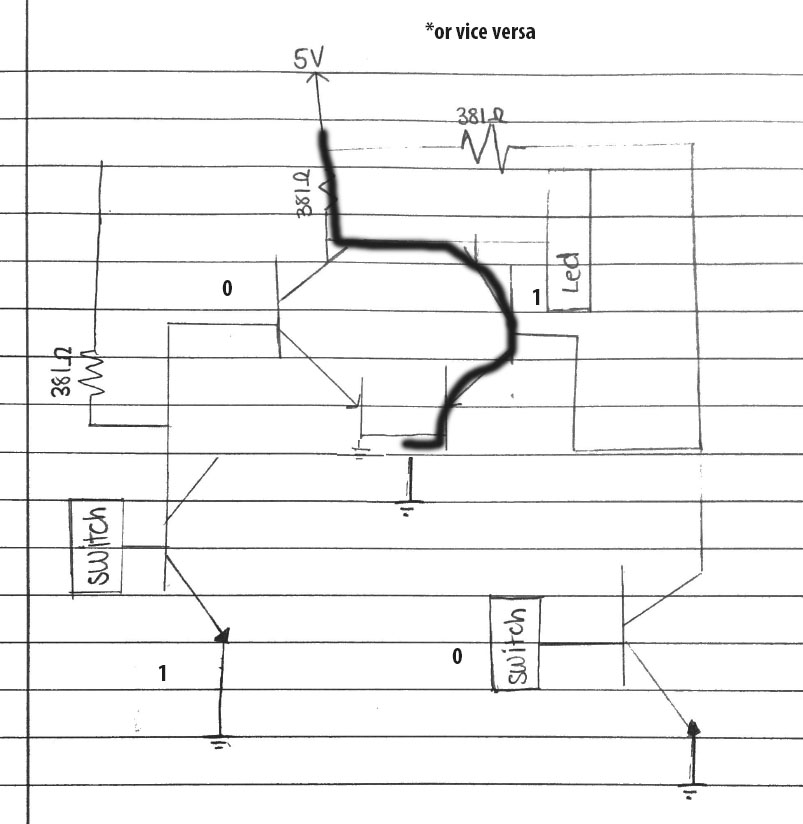 *or vice versa
5V
381Ω
381Ω
Led
0
1
381Ω
switch
switch
1
0